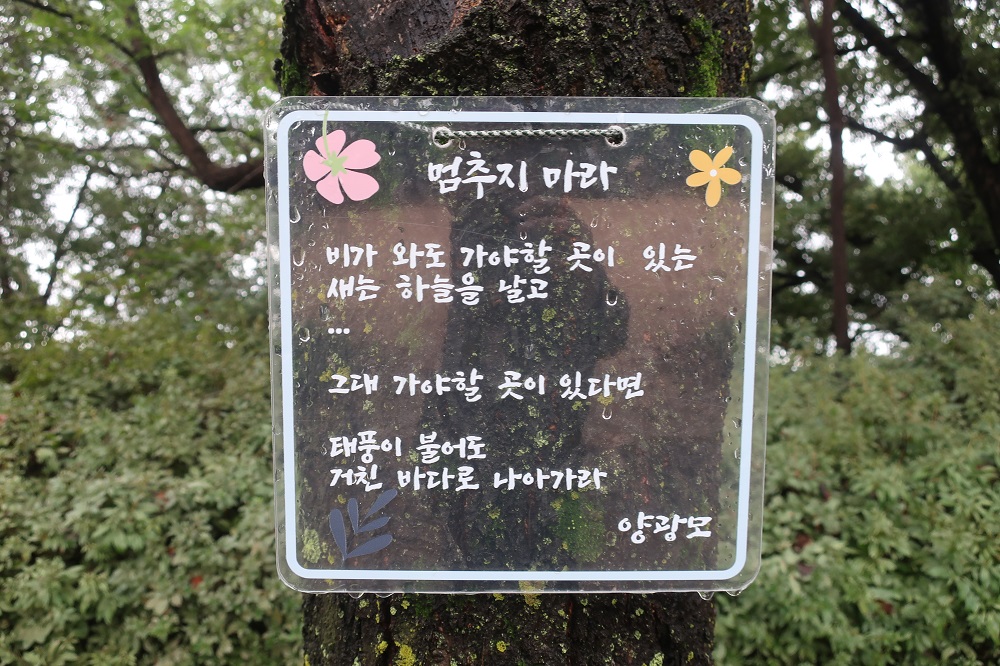 멈추지 마라
비가 와도 가야할 곳이 있는
새는 하늘을 날고
...
그대 가야할 곳이 있다면
태풍이 불어도
거친 바다로 나아가라
양광모